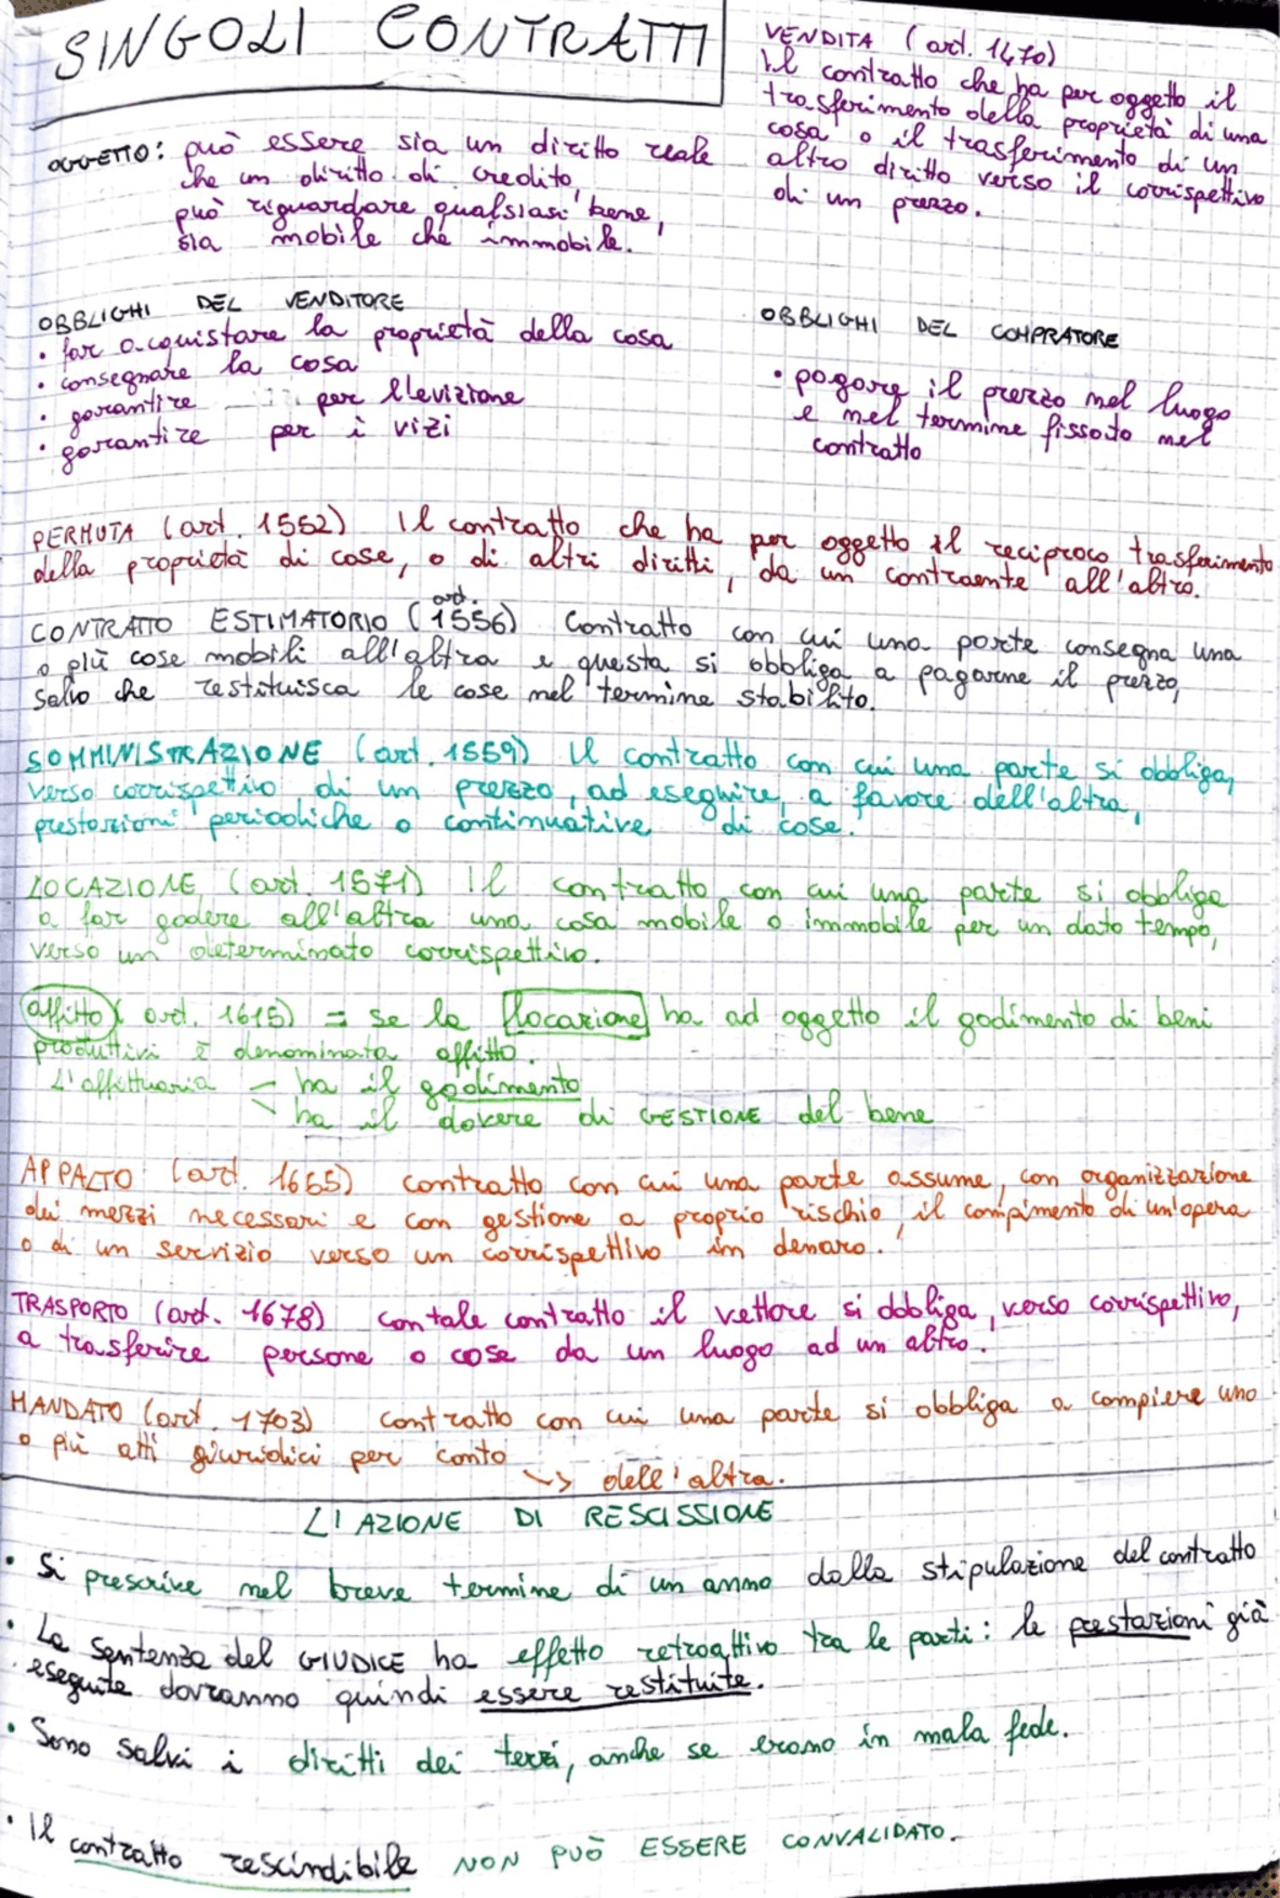 SINGOLI CONTRATTI
VENDITA (art. 1470)
Il contratto che ha per oggetto il
trasferimento della proprietà di una
cosa o il trasferimento di un
altro diritto verso il corrispettivo
di un prezzo.
OGGETTO: può essere sia un diritto reale
che un diritto di credito,
può riguardare qualsiasi bene,
sia mobile che immobile.
OBBLIGHI DEL VENDITORE
• far acquistare la proprietà della cosa
• consegnare la cosa
• garantire per l'evizione
• garantire per i vizi
OBBLIGHI DEL COMPRATORE
• pagare il prezzo nel luogo
e nel termine fissato nel
contratto
PERMUTA (art. 1552) Il contratto che ha per oggetto il reciproco trasferimento
della proprietà di cose, o di altri diritti, da un contraente all'altro.
CONTRATTO ESTIMATORIO (art. 1556) Contratto con cui una parte consegna una
o più cose mobili all'altra e questa si obbliga a pagarne il prezzo,
salvo che restituisca le cose nel termine stabilito.
SOMMINISTRAZIONE (art. 1559) Il contratto con cui una parte si obbliga,
verso corrispettivo di un prezzo, ad eseguire, a favore dell'altra,
prestazioni periodiche o continuative di cose.
LOCAZIONE (art. 1571) Il contratto con cui una parte si obbliga
a far godere all'altra una cosa mobile o immobile per un dato tempo,
verso un determinato corrispettivo.
affitto (art. 1615) = se la locazione ha ad oggetto il godimento di beni
produttivi è denominata affitto.
L'affittuaria - ha il godimento
- ha il dovere di GESTIONE del bene
APPALTO (art. 1665) contratto con cui una parte assume, con organizzazione
dei mezzi necessari e con gestione a proprio rischio, il compimento di un'opera
o di un servizio verso un corrispettivo in denaro.
TRASPORTO (art. 1678) con tale contratto il vettore si obbliga, verso corrispettivo,
a trasferire persone o cose da un luogo ad un altro.
MANDATO (art. 1703) contratto con cui una parte si obbliga a compiere uno
o più atti giuridici per conto
↳ dell'altra.
L'AZIONE DI RESCISSIONE
• Si prescrive nel breve termine di un anno dalla stipulazione del contratto
• La sentenza del GIUDICE ha effetto retroattivo tra le parti: le prestazioni già
eseguite dovranno quindi essere restituite.
• Sono salvi i diritti dei terzi, anche se erano in mala fede.
• Il contratto rescindibile NON PUÒ ESSERE CONVALIDATO.